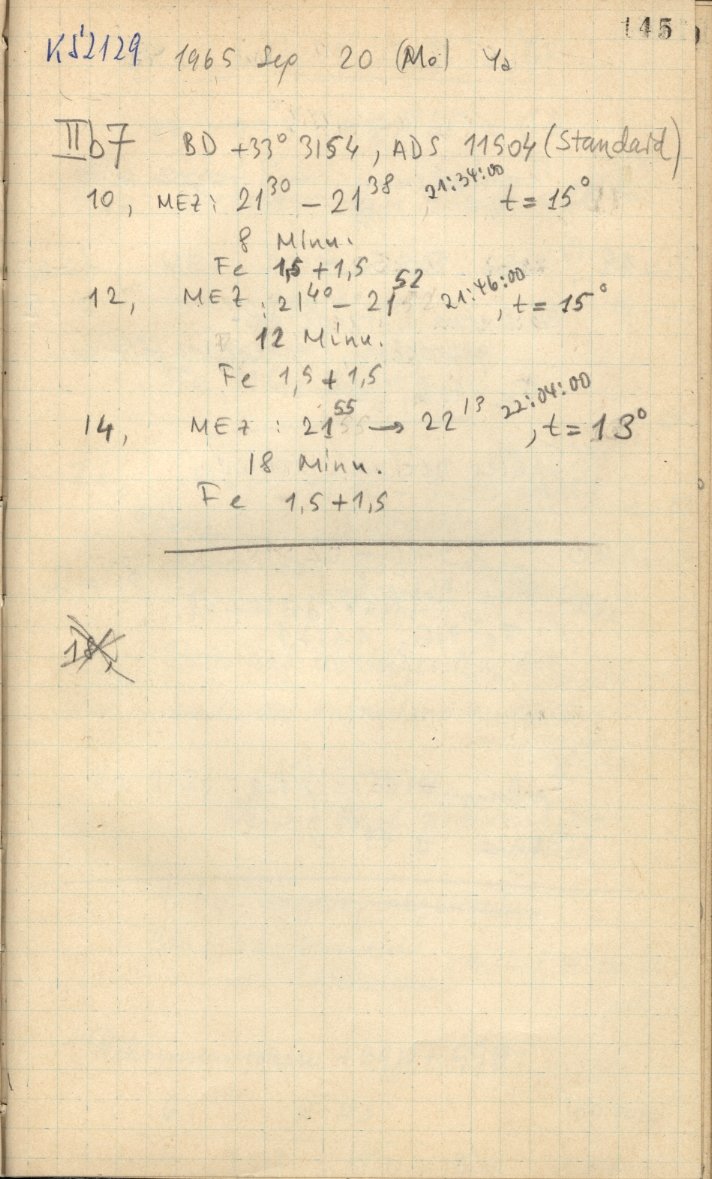 145
KS2129 1965 Sep 20 (Mo) Ya
IIb7 BD +33° 3154, ADS 11504 (Standard)
10, MEZ: 21³⁰ – 21³⁸, 21:34:00 t = 15°
8 Minu.
Fe 1,5 + 1,5
12, MEZ: 21⁴⁰ – 21⁵² 21:46:00, t = 15°
12 Minu.
Fe 1,5 + 1,5
14, MEZ: 21⁵⁵ → 22¹³ 22:04:00, t = 13°
18 Minu.
Fe 1,5 + 1,5
18,